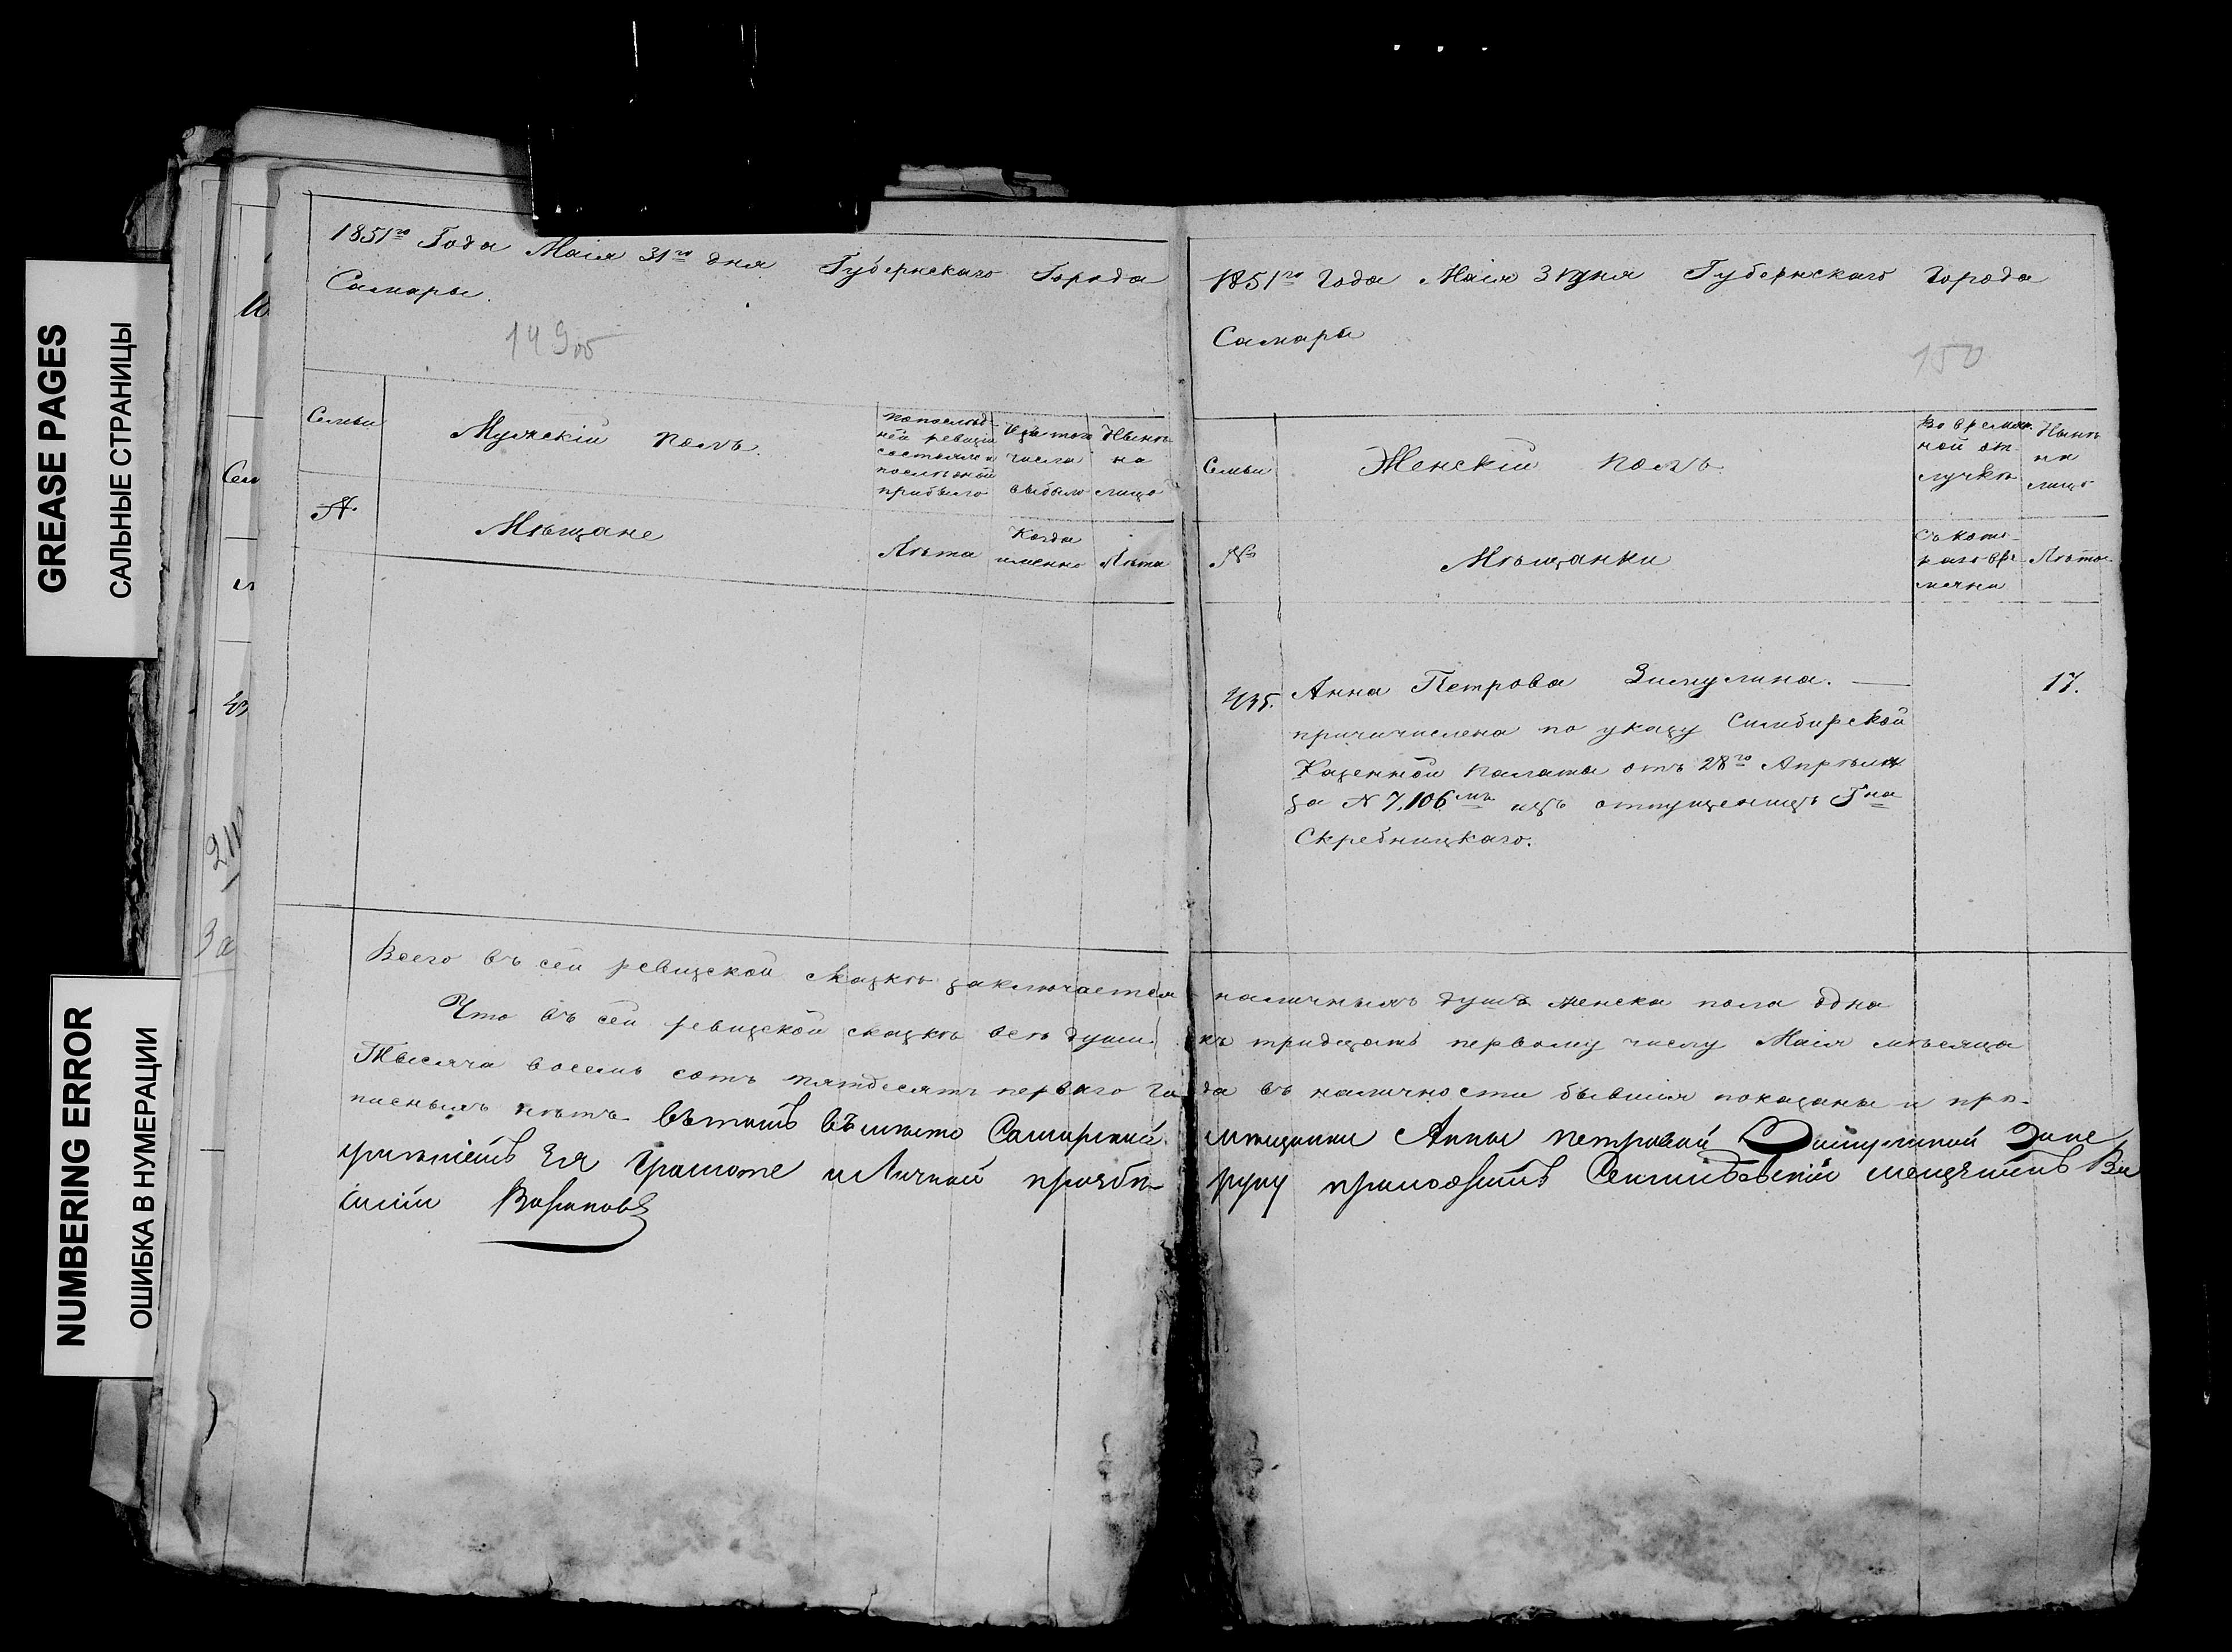 GREASE PAGES
САЛЬНЫЕ СТРАНИЦЫ
NUMBERING ERROR
ОШИБКА В НУМЕРАЦИИ
1851го Года Маія 31го дня Губернскаго Города
Самары.
149об
Семьи
Мужскій полъ.
По послѣд-
ней ревизіи
состояло и
послѣ оной
прибыло
Изъ того
числа
выбыло
Нынѣ
на
лицо
№
Мѣщане
Лѣта
Когда
именно
Лѣта
1851го Года Маія 31 дня Губернскаго Города
Самары
150
Семьи
Женскій полъ
Во времян-
ной от-
лучкѣ
Нынѣ
на
лицо
№
Мѣщанки
Съ кото-
раго вре
мячни
Лѣта
435. Анна Петрова Зимулина. — 17.
причислена по указу Симбирской
Казенной палаты отъ 28го Апрѣля
за № 7,106мъ изъ отпущеницъ Гна
Скребницкаго.
Всего въ сей ревизской сказкѣ заключается наличныхъ душъ женска пола одна
Что въ сей ревизской сказкѣ всѣ души къ тридцать первому числу Маія мѣсяца
Тысяча восемь сотъ пятдесятъ перваго года въ наличности бывшія показаны и про-
писныхъ нѣтъ. Вътомъ Въместо Самарской мѣщанки Анны петровой
Ея Грамоте иличной прозбы руку приложилъ мещенинъ Ва
силій